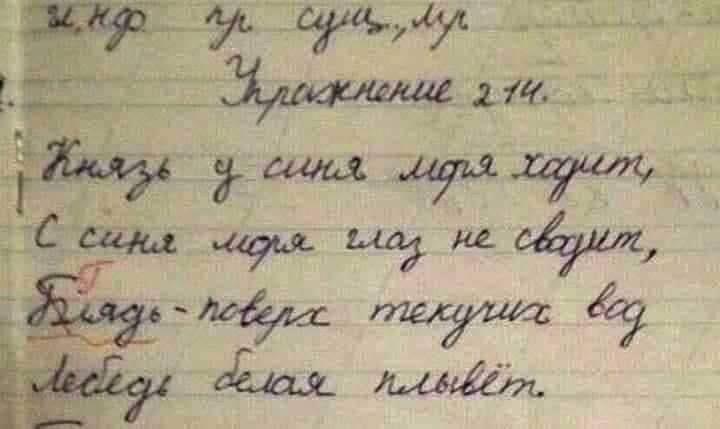 инф пр сущ., мр
Упражнение 214.
Князь у синя моря ходит,
С синя моря глаз не сводит,
Г
Блядь-поверх текучих вод
Лебедь белая плывёт.